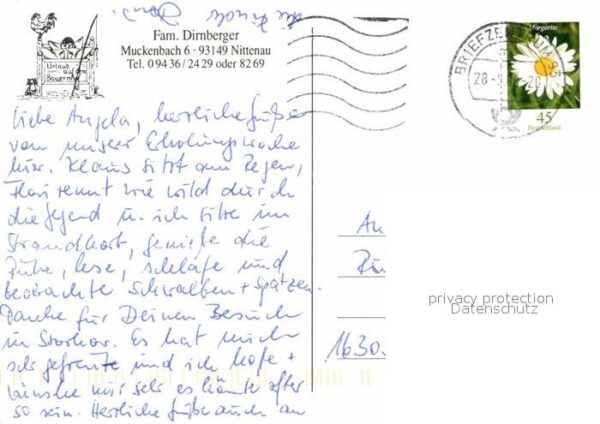 Urlaub
auf dem
Bauernhof
Fam. Dirnberger
Muckenbach 6 · 93149 Nittenau
Tel. 0 94 36 / 24 29 oder 82 69
Liebe Angela, herzliche Grüße
von unserer Erholungswoche
hier. Klaus sitzt am Regen,
rennt wie wild durch
die Gegend u. ich sitze im
Strandkorb, genieße die
Ruhe, lese, schlafe und
beobachte Schwalben + Spatzen.
Danke für Deinen Besuch
in Storkow. Es hat mich
sehr gefreut und ich hoffe +
wünsche mir sehr es könnte öfter
so sein. Herzliche Grüße auch an
BRIEFZENTRUM
28
Margerite
45
Deutschland
An
1630
privacy protection
Datenschutz